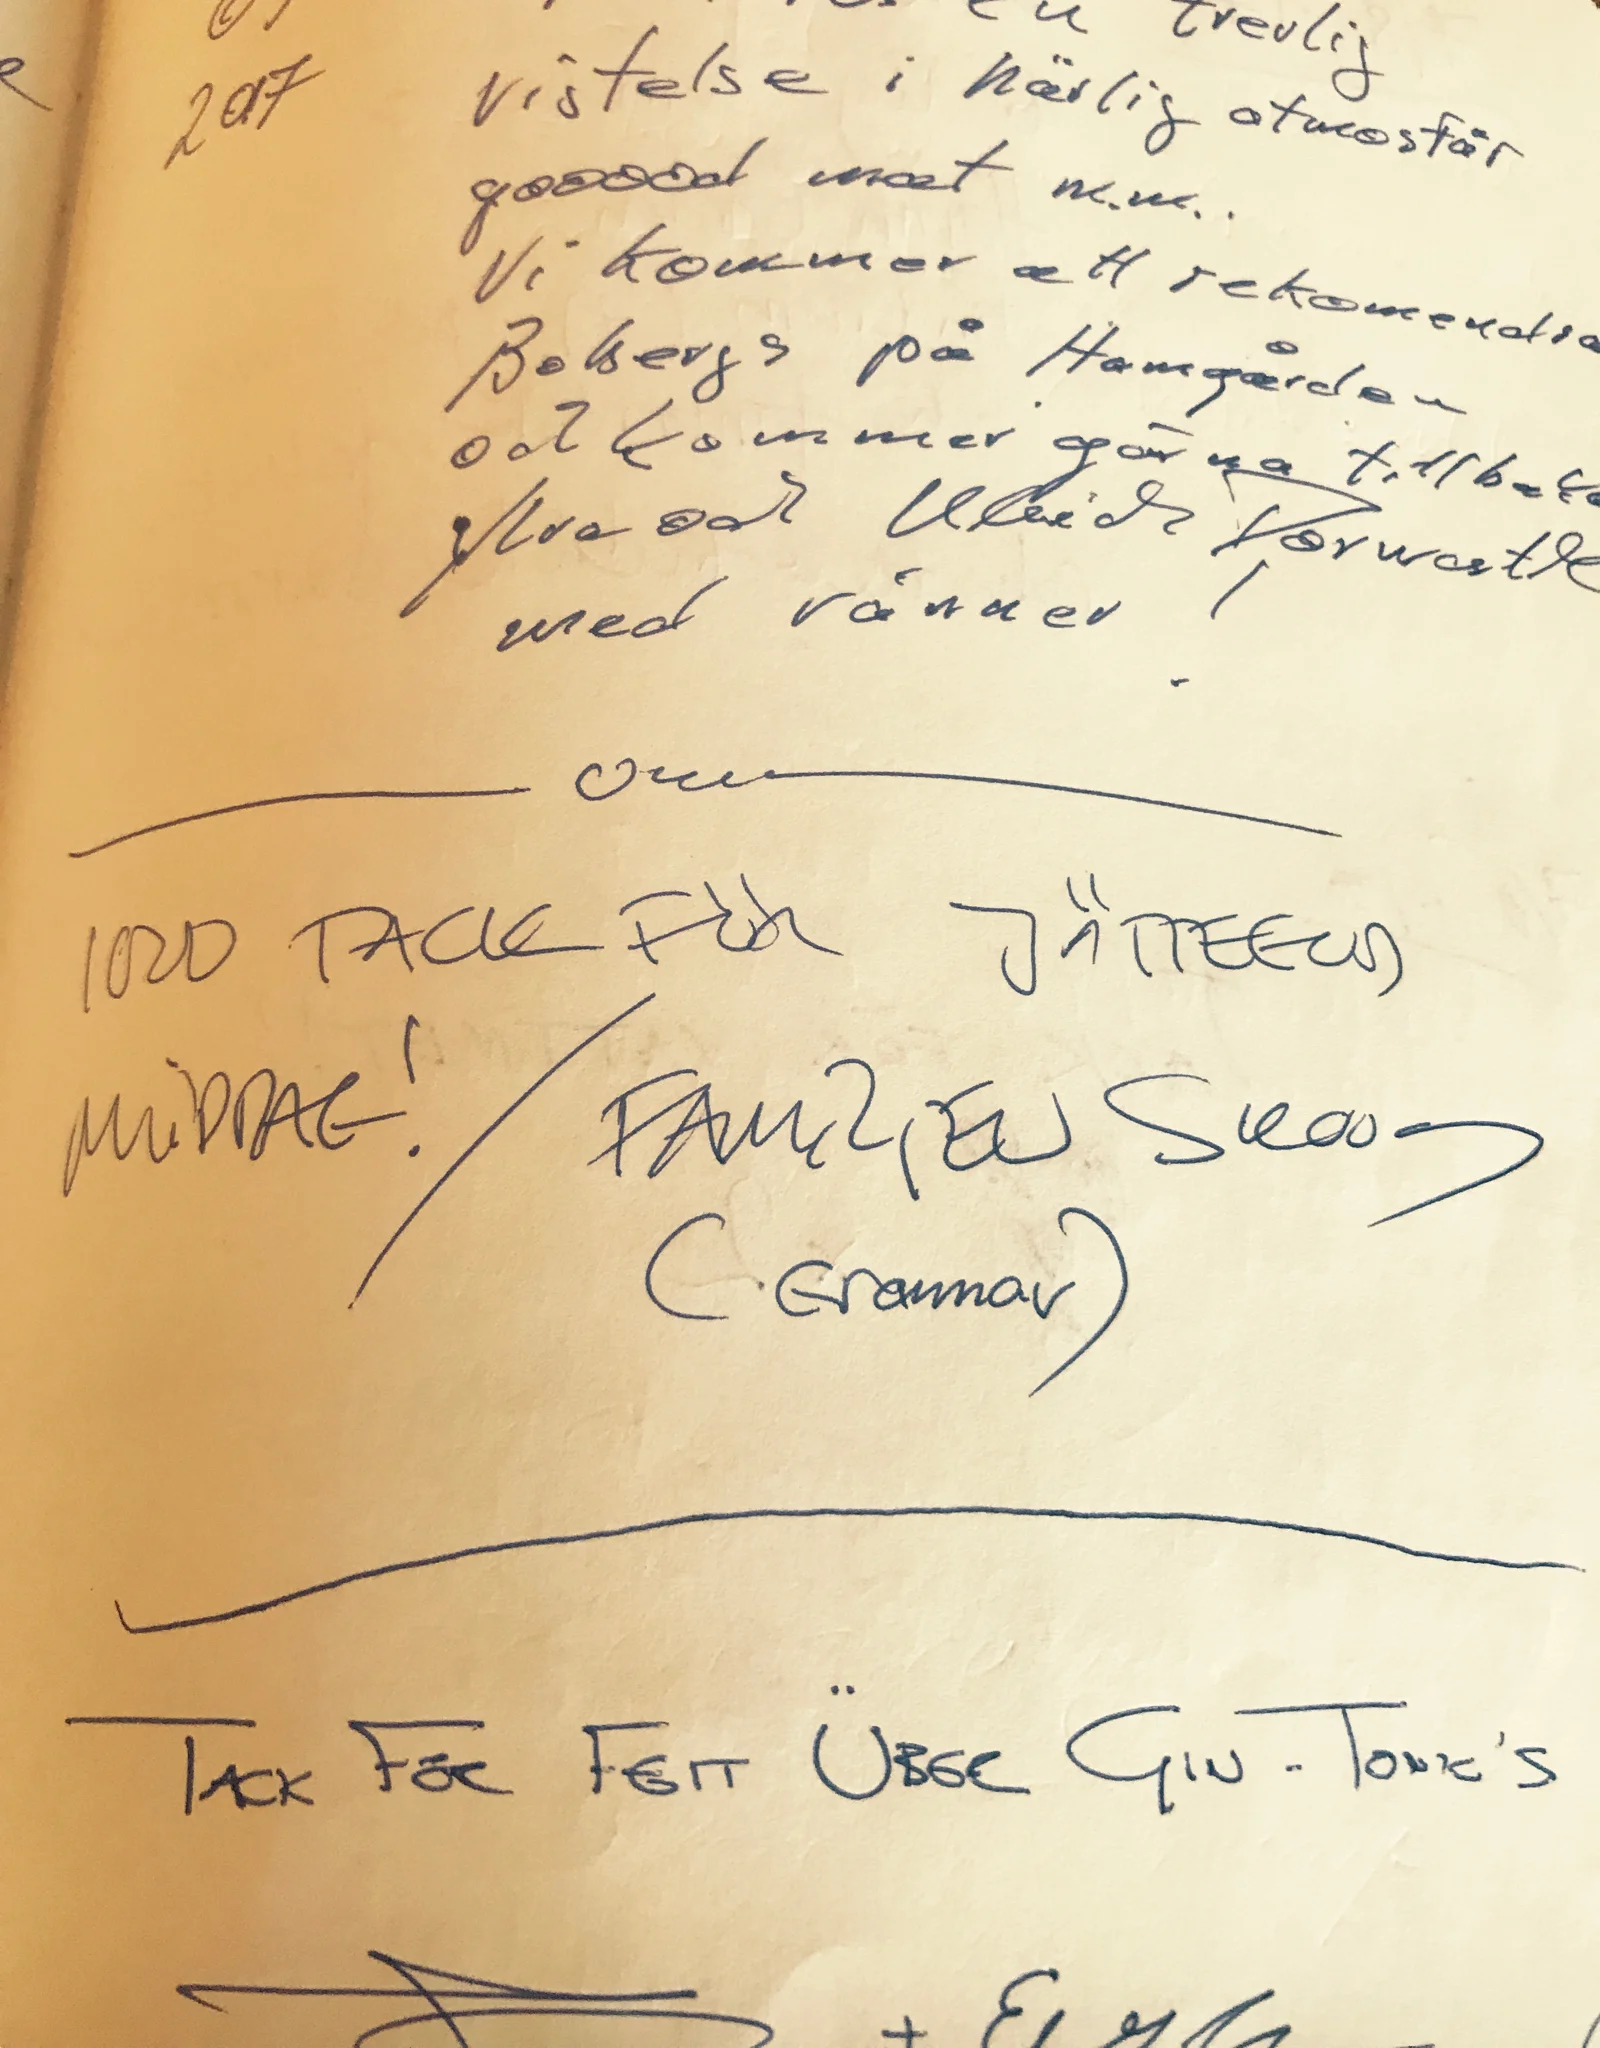 en trevlig
2017 vistelse i härlig atmosfär
gooood mat m.m..
Vi kommer att rekomendra
på Hamgården
och kommer gärna tillbaka
och
med vänner!
1000 TACK FÖR JÄTTEGOD
MIDDAG! / FAMILJEN SKOOG
(Grannar)
TACK FÖR FETT ÜBER GIN-TONIC'S
+